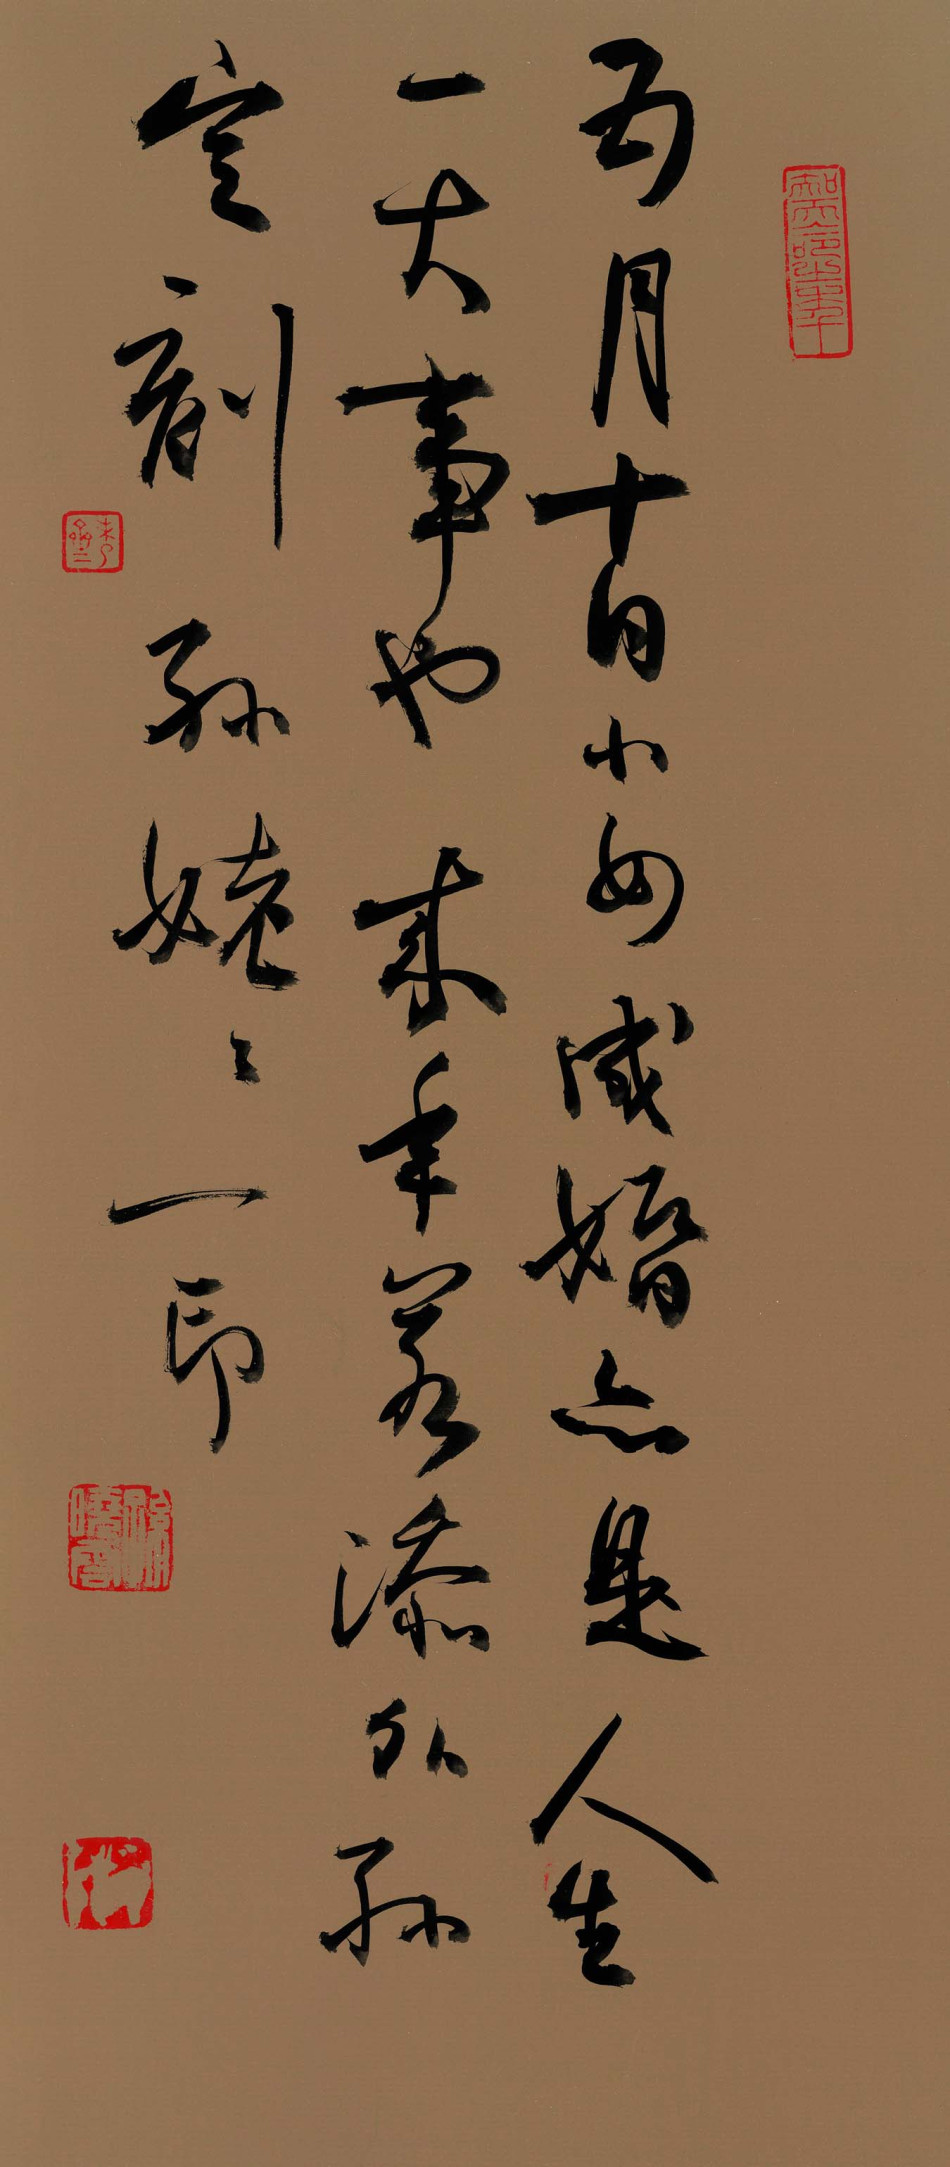 五月十日小女成婚亦是人生
一大事也来年若添外孙
定刻孙媱〻一印